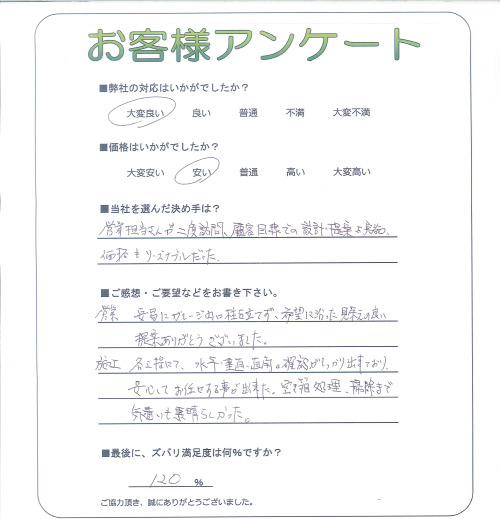 お客様アンケート
■弊社の対応はいかがでしたか？
大変良い 良い 普通 不満 大変不満
■価格はいかがでしたか？
大変安い 安い 普通 高い 大変高い
■当社を選んだ決め手は？
営業担当さんが二度訪問、顧客目線での設計・提案を実施。
価格もリーズナブルだった。
■ご感想・ご要望などをお書き下さい。
営業 安易にガレージ出口に柱を立てず、希望に沿った見栄えの良い
提案ありがとうございました。
施工 各工程にて、水平・垂直・直角の確認がしっかり出来ており、
安心してお任せする事が出来た。空き箱処理、掃除まで
気遣いも素晴らしかった。
■最後に、ズバリ満足度は何％ですか？
120 ％
ご協力頂き、誠にありがとうございました。